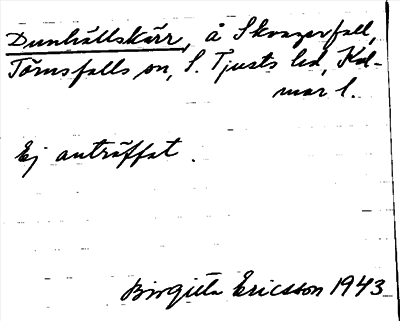 Dunhällskärr, å Skvagerfall,
Törnsfalls sn, S. Tjusts hd, Kal-
mar l.
Ej anträffat.
Birgitta Ericsson 1943